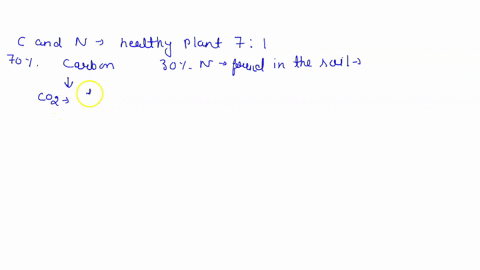 C and N → healthy plant 7 : 1
70%. Carbon 30%. N → found in the soil →
↓
CO2 →